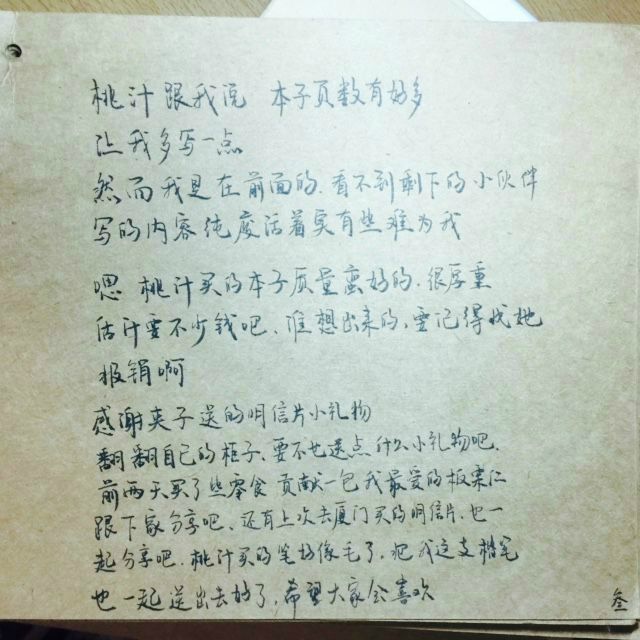 桃汁跟我说 本子页数有好多
让我多写一点
然而我是在前面的、看不到剩下的小伙伴
写的内容纯废话着实有些难为我
嗯 桃汁买的本子质量蛮好的、很厚重
估计要不少钱吧、谁想出来的、要记得找她
报销啊
感谢夹子送的明信片小礼物
翻翻自己的柜子、要不也送点什么小礼物吧、
前两天买了些零食 贡献一包我最爱的板栗仁
跟下家分享吧、还有上次去厦门买的明信片、也一
起分享吧、桃汁买的笔好像毛了、把我这支
也一起送出去好了、希望大家会喜欢
叁